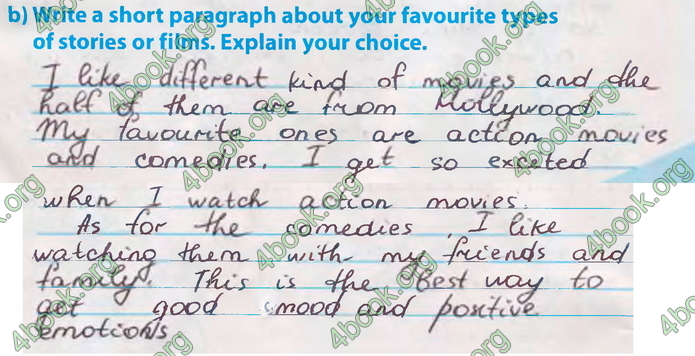 b) Write a short paragraph about your favourite types
of stories or films. Explain your choice.
I like different kind of movies and the
half of them are from Hollywood.
My favourite ones are action movies
and comedies. I get so exceted
when I watch action movies.
As for the comedies, I like
watching them with my friends and
family. This is the best way to
get good mood and positive
emotions
4book.org
4book.org
4book.org
4book.org
4book.org
4book.org
4book.org
4book.org
4book.org
4book.org